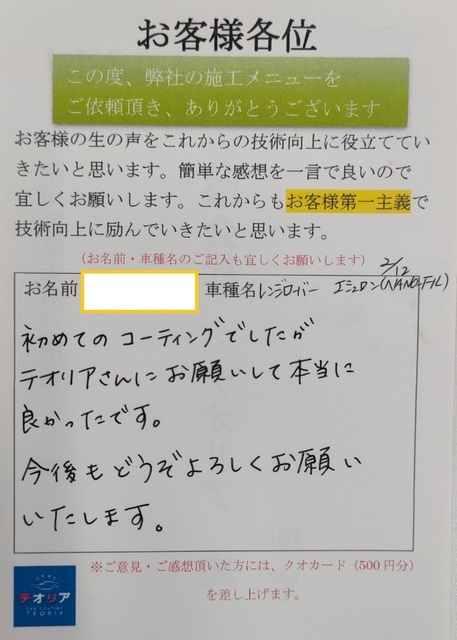 お客様各位
この度、弊社の施工メニューを
ご依頼頂き、ありがとうございます
お客様の生の声をこれからの技術向上に役立ててい
きたいと思います。簡単な感想を一言で良いので
宜しくお願いします。これからもお客様第一主義で
技術向上に励んでいきたいと思います。
(お名前・車種名のご記入も宜しくお願いします)
2/12
お名前 車種名 レンジローバー エシュロン(NANO-FIL)
初めてのコーティングでしたが
テオリアさんにお願いして本当に
良かったです。
今後もどうぞよろしくお願い
いたします。
※ご意見・ご感想頂いた方には、クオカード(500円分)
を差し上げます。
テオリア
CAR COATING
TEORIA